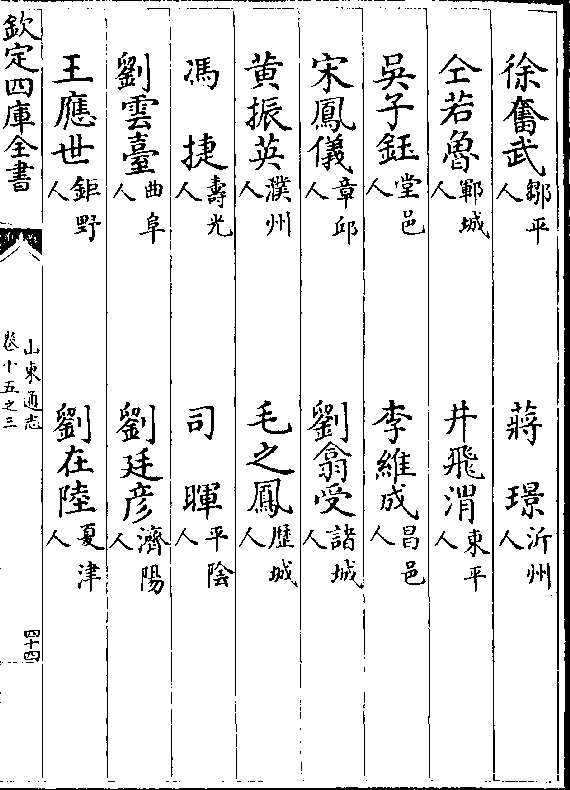 徐奮武鄒平人　蔣　璟沂州人
仝若魯鄆城人　井飛渭東平人
吳子鈺堂邑人　李維成昌邑人
宋鳳儀章邱人　劉翕受諸城人
黄振英濮州人　毛之鳳歴城人
馮　捷壽光人　司　暉平陰人
劉雲臺曲阜人　劉廷彦濟陽人
王應世鉅野人　劉在陸夏津人
欽定四庫全書　山東通志卷十五之三　四十四